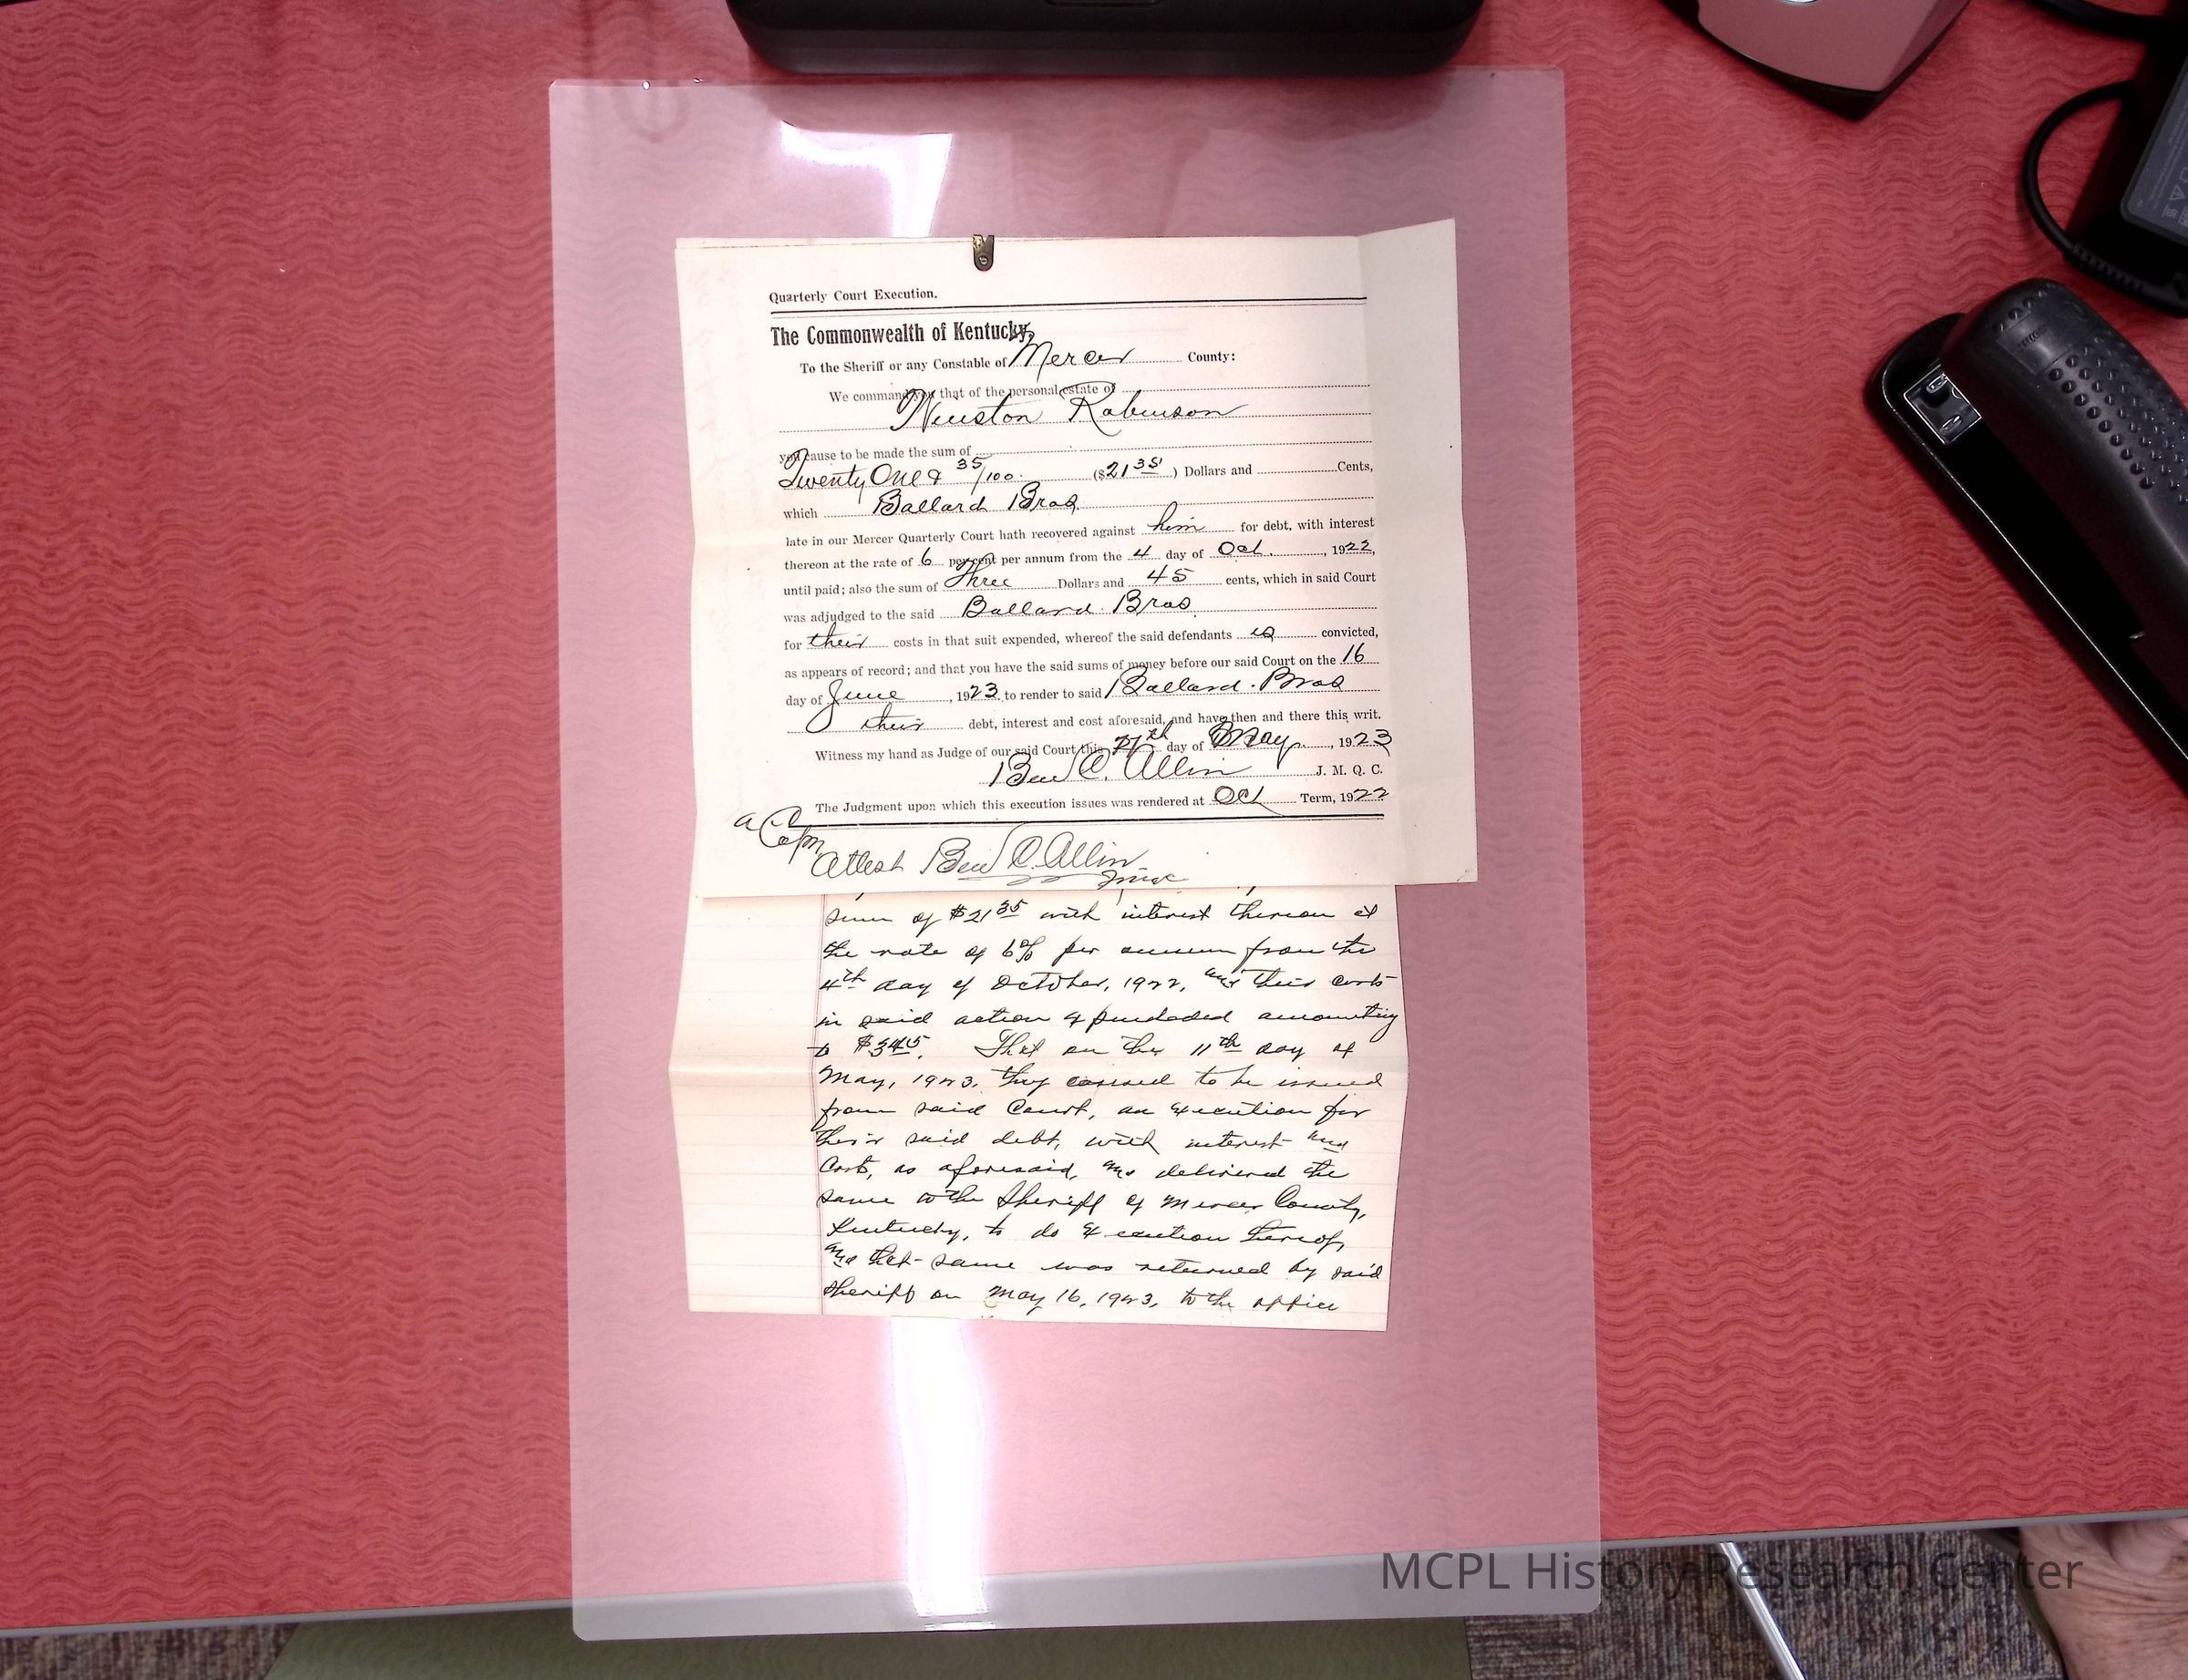 Quarterly Court Execution.
The Commonwealth of Kentucky,
To the Sheriff or any Constable of Mercer County:
We command you that of the personal estate of
Winston Robinson
you cause to be made the sum of
Twenty One & 35/100 ($21 35) Dollars and Cents,
which Ballard Bros
late in our Mercer Quarterly Court hath recovered against him for debt, with interest
thereon at the rate of 6 per cent per annum from the 4 day of Oct. , 1922,
until paid; also the sum of Three Dollars and 45 cents, which in said Court
was adjudged to the said Ballard Bros
for their costs in that suit expended, whereof the said defendants is convicted,
as appears of record; and that you have the said sums of money before our said Court on the 16
day of June , 1923 to render to said Ballard Bros
their debt, interest and cost aforesaid, and have then and there this writ.
Witness my hand as Judge of our said Court this day of May , 1923
Ben C. Allin J. M. Q. C.
The Judgment upon which this execution issues was rendered at Oct Term, 1922
A Copy
Attest Ben C. Allin
sum of $21 35 with interest thereon at
the rate of 6% per annum from the
4th day of October, 1922, and their costs
in said action expended amounting
to $3 45. That on the 11th day of
May, 1923, they caused to be issued
from said Court, an execution for
their said debt, with interest and
costs, as aforesaid, and delivered the
same to the Sheriff of Mercer County,
Kentucky, to do execution thereof,
and that same was returned by said
Sheriff on May 16, 1923, to the office
MCPL History Research Center